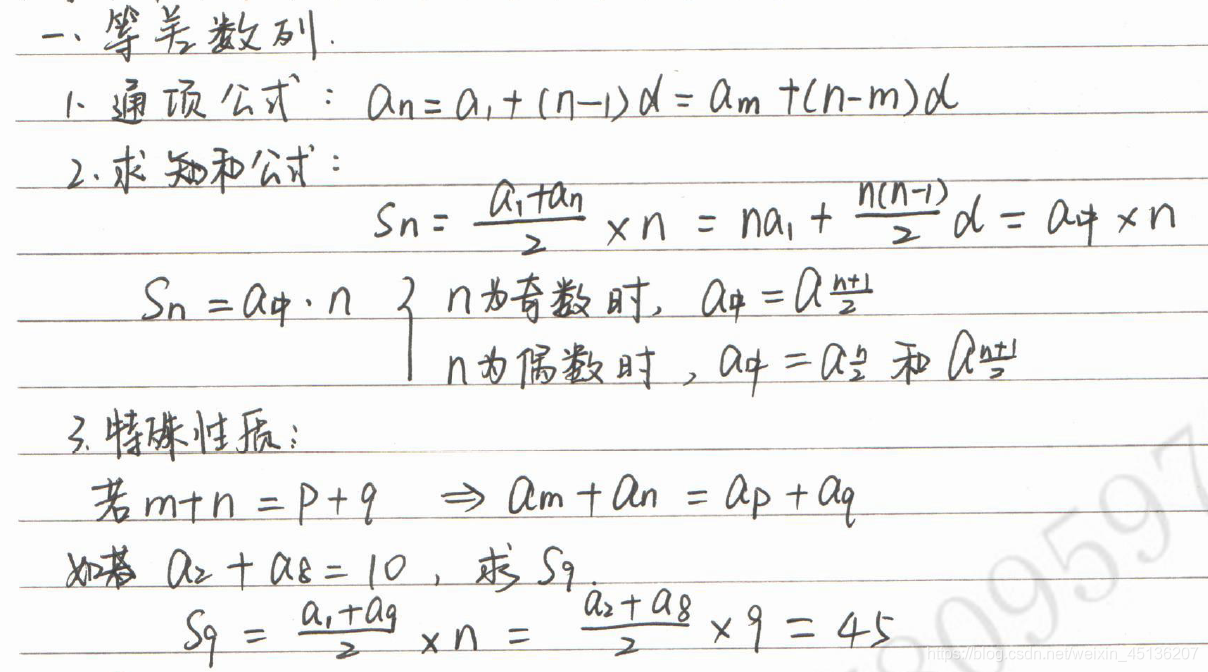 一、等差数列.
1. 通项公式: an=a1+(n-1)d=am+(n-m)d
2. 求和公式:
Sn= (a1+an)/2 ×n = na1+ n(n-1)/2 d = a中×n
Sn=a中·n { n为奇数时, a中=a(n+1)/2
n为偶数时, a中=a n/2 和 a (n+1)/2
3. 特殊性质:
若m+n=p+q ⇒ am+an=ap+aq
如若 a2+a8=10, 求S9.
S9= (a1+a9)/2 ×n= (a2+a8)/2 ×9=45
809597
https://blog.csdn.net/weixin_45136207